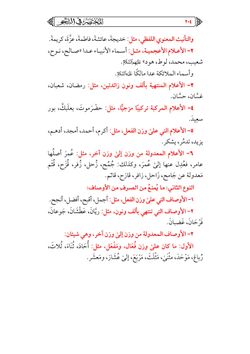 ٢٠٤
والتأنيث المعنوي اللفظي، مثل: خديجة، عائشة، فاطمة، عزَّة، كريمة.
٢- الأعلام الأعجمية، مثل: أسماء الأنبياء عدا «صالح، نوح،
شعيب، محمد، لوط، هود»
وأسماء الملائكة عدا مالكًا
٣- الأعلام المنتهية بألف ونون زائدتين، مثل: رمضان، شعبان،
غسَّان، حسَّان.
٤- الأعلام المركبة تركيبًا مزجيًّا، مثل: حضرَموت، بعلَبكّ، بور
سعيد.
٥- الأعلام التي على وزن الفعل، مثل: أكرم، أحمد، أمجد، أدهم،
يزيد، تدمُر، يشكر.
٦- الأعلام المعدولة عن وزن إلى وزن آخر، مثل: عُمَرَ أصلُها
عامر، فعُدِل عنها إلى عُمَرَ، وكذلك: جُمَح، زُحل، زُفر، قُزَح، قُثَم
معدولة عن جامح، زاحل، زافر، قازح، قاثم.
النوع الثاني: ما يُمنعُ من الصرف من الأوصاف:
١- الأوصاف التي على وزن الفعل، مثل: أجمل، أقبح، أفضل، أنجح.
٢- الأوصاف التي تنتهي بألف ونون، مثل: ريَّان، عطشان، جَوعانَ،
فَرْحَانَ، غَضبانَ.
٣- الأوصاف المعدولة من وزن إلى وزن آخر، وهي شيئان:
الأول: ما كان على وزن فُعَال، ومَفْعَل، مثل: أُحَادَ، ثُنَاءَ، ثُلَاثَ،
رُبَاعَ، مَوْحَدَ، مثْنَى، مَثْلَثَ، مَرْبَعَ، إلى عُشَارَ، ومَعشَر.